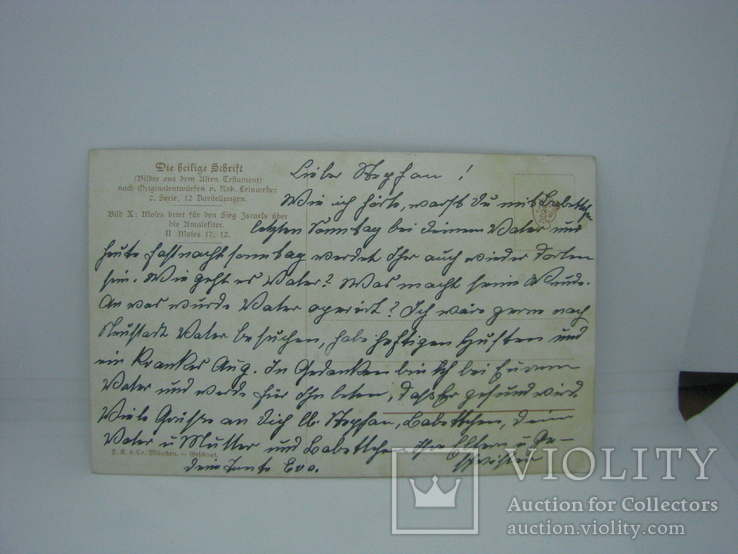 Die heilige Schrift
(Bilder aus dem Alten Testament)
nach Originalentwürfen v. Rob. Leinweber
2. Serie, 12 Darstellungen.
Bild X: Moses betet für den Sieg Israels über
die Amalekiter.
II Moses 17, 12.
Lieber Stephan!
Wie ich hörte, warst Du mit Babettchen
letzten Sonntag bei Deinem Vater und
heute Fastnachtsonntag werdet Ihr auch wieder dorten
sein. Wie geht es Vater? Was macht seine Wunde.
An was wurde Vater operiert? Ich wäre gerne nach
Neustadt Vater besuchen, habe heftigen Husten und
ein krankes Aug. In Gedanken bin ich bei Eurem
Vater und werde für ihn beten, daß er gesund wird.
Viele Grüße an Dich lb. Stephan, Babettchen, Dein
Vater u Mutter und Babettchen Ihre Eltern u. Ge-
schwister
Deine Tante Eva.
F. A. & Co. München. – Geschützt.
VIOLITY
Auction for Collectors
auction.violity.com